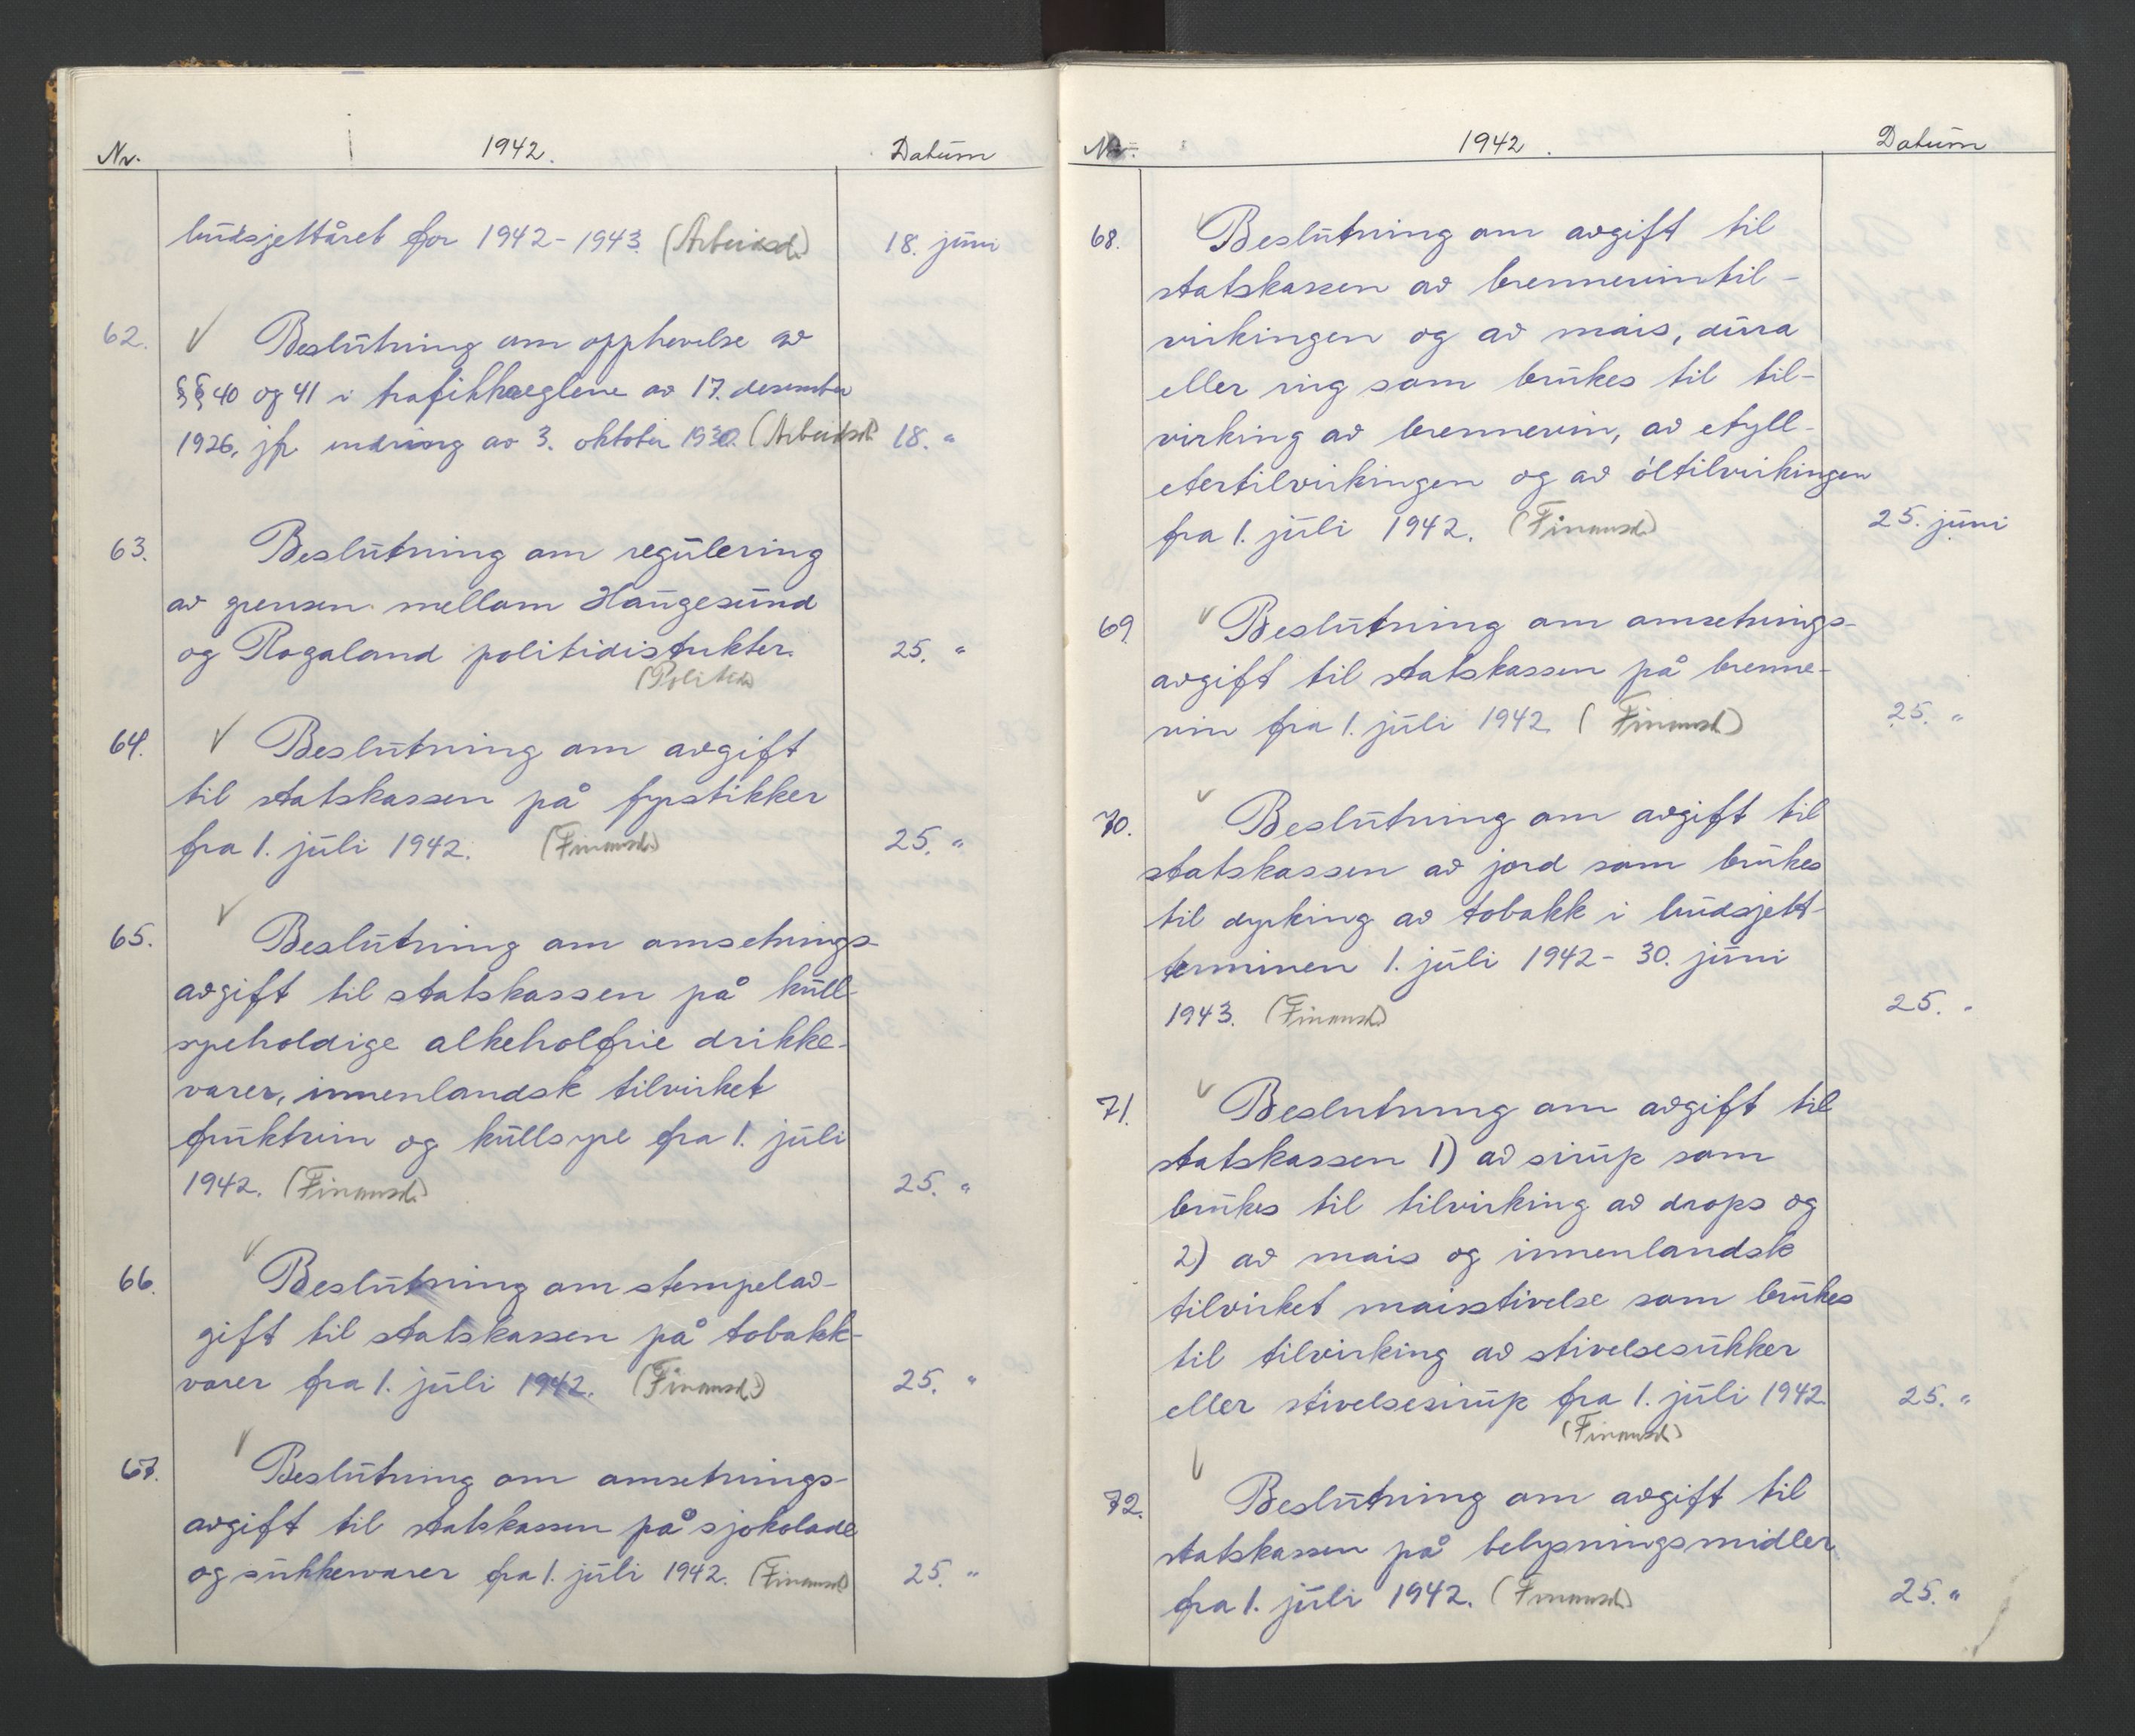 Nr. 1942. Datum
budsjettåret for 1942-1943. (Arbeidsd.) 18. juni
62. ✓ Beslutning om opphevelse av
§§ 40 og 41 i trafikkreglene av 17. desember
1926, jfr. endring av 3. oktober 1930. (Arbeidsd. 18. "
63. Beslutning om regulering
av grensen mellom Haugesund
og Rogaland politidistrikter. 25. "
(Politid.)
64. ✓ Beslutning om avgift
til statskassen på fyrstikker
fra 1. juli 1942. (Finansd.) 25. "
65. ✓ Beslutning om omsetnings-
avgift til statskassen på kull-
syreholdige alkeholfrie drikke-
varer, innenlandsk tilvirket
fruktvin og kullsyre fra 1. juli
1942. (Finansd.) 25. "
66. ✓ Beslutning om stempelav-
gift til statskassen på tobakk-
varer fra 1. juli 1942. (Finansd.) 25. "
67. ✓ Beslutning om omsetnings-
avgift til statskassen på sjokolade
og sukkervarer fra 1. juli 1942. (Finansd) 25. "
Nr. 1942. Datum
68. ✓ Beslutning om avgift til
statskassen av brennevintil-
virkingen og av mais, durra
eller ris som brukes til til-
virking av brennevin, av etyll-
etertilvirkingen og av øltilvirkingen
fra 1. juli 1942. (Finansd.) 25. juni
69. ✓ Beslutning om omsetnings-
avgift til statskassen på brenne-
vin fra 1. juli 1942. (Finansd) 25. "
70. ✓ Beslutning om avgift til
statskassen av jord som brukes
til dyrking av tobakk i budsjett-
terminen 1. juli 1942 - 30. juni
1943. (Finansd.) 25. "
71. ✓ Beslutning om avgift til
statskassen 1) av sirup som
brukes til tilvirking av drops og
2) av mais og innenlandsk
tilvirket maisstivelse som brukes
til tilvirking av stivelsesukker
eller stivelsesirup fra 1. juli 1942. 25. "
(Finansd.)
72. ✓ Beslutning om avgift til
statskassen på belysningsmidler
fra 1. juli 1942. (Finansd.) 25. "